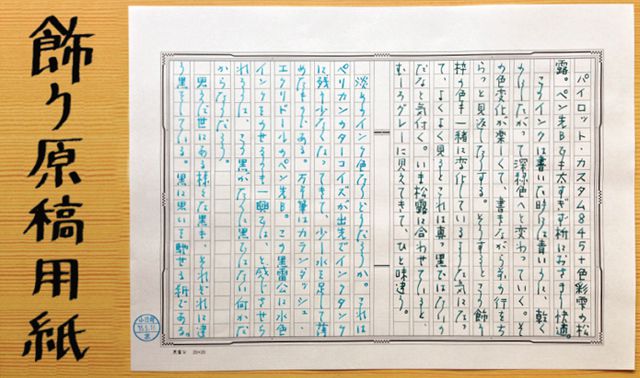 飾り原稿用紙
パイロット・カスタム845+色彩雫の松
露。ペン先Bでも太すぎず枡におさまり快適。
このインクは書いた時には青いのに、乾く
にしたがって深緑色へと変わっていく。そ
の色変化が楽しくて、書きながら前の行をち
らっと見返したりする。そうするとこの飾り
枠の色も一緒に変化しているような気になっ
て、よくよく見るとこれは真っ黒ではないん
だなと気付く。いま松露に合わせていると、
むしろグレーに見えてきて、ひと味違う。
淡いインク色ならどうだろうか。これは
ペリカンのターコイズが出先でインクタンク
に残り少なくなってきて、少し水を足して薄
めたものである。万年筆はカランダッシュ・
エクリドールのペン先B。この黒雷公は水色
インクをのせるのも一興では、と感じさせら
れるような、この黒がただの黒ではない何かだ
からなのだろう。
思うに世にある様々な黒も、それぞれに違
う黒をしている。黒に思いを馳せる紙である。
20×20